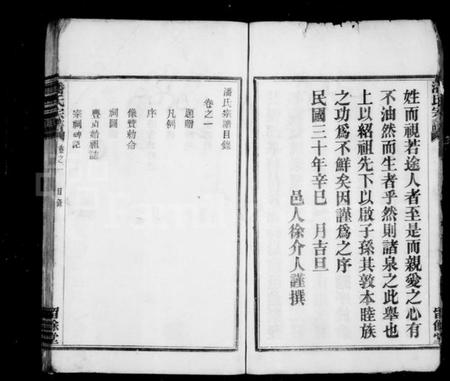 姓而視若途人者至是而親愛之心有
不油然而生者乎然則諸泉之此舉也
上以紹祖先下以啟子孫其敦本睦族
之功為不鮮矣因謹為之序
民國三十年辛巳　月吉旦
邑人徐介人謹撰
潘氏宗譜
留餘堂
潘氏宗譜目錄
卷之一
題贈
凡例
序
像贊勅命
祠圖
宗祠碑記
潘氏宗譜
卷之一
目錄
留餘堂